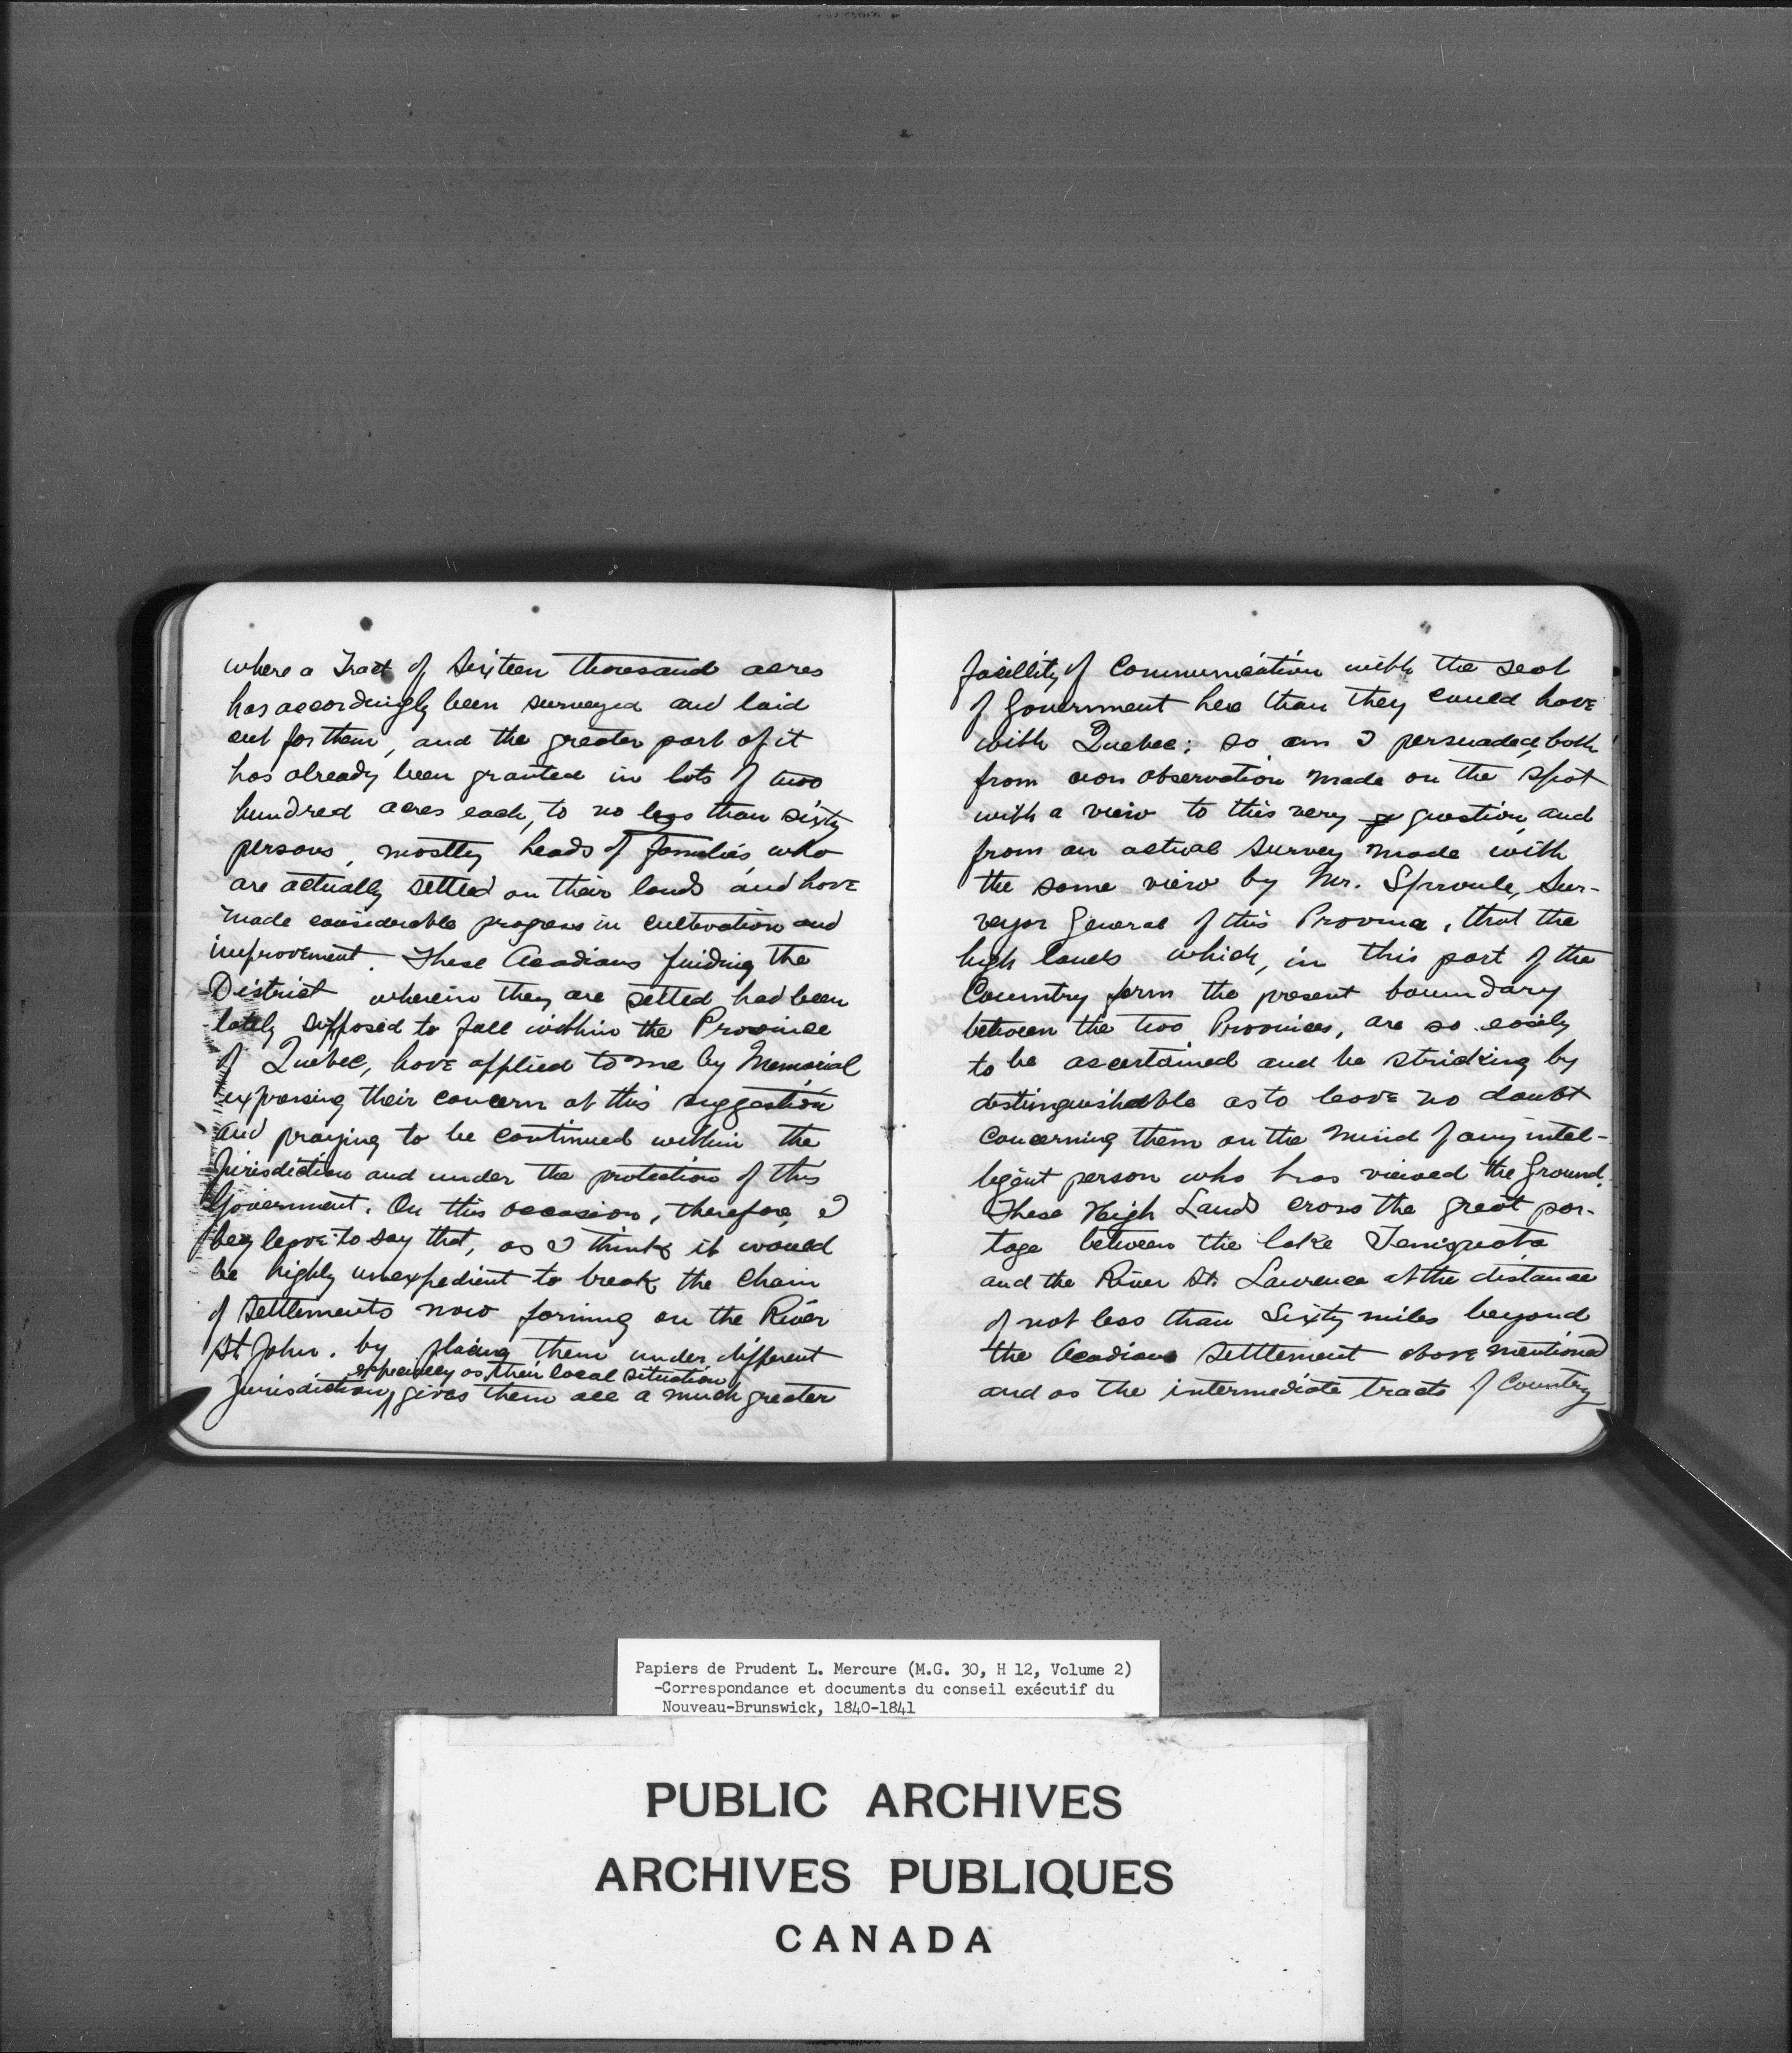 where a Tract of Sixteen thousand acres
has accordingly been surveyed and laid
out for them, and the greater part of it
has already been granted in lots of two
hundred acres each, to no less than sixty
persons, mostly heads of families who
are actually settled on their lands and have
made considerable progress in cultivation and
improvement. These Acadians finding the
District wherein they are settled had been
lately supposed to fall within the Province
of Quebec, have applied to me by Memorial
expressing their concern at this suggestion
and praying to be continued within the
Jurisdiction and under the protection of this
Government. On this occasion, therefore, I
beg leave to say that, as I think it would
be highly unexpedient to break the chain
of Settlements now forming on the River
St John. by placing them under different
especially as their local situation
Jurisdiction, gives them all a much greater
facillity of Communication with the seat
of Government here than they could have
with Quebec; so am I persuaded, both
from own observation made on the spot
with a view to this very question, and
from an actual survey made with
the same view by Mr. Sproule, Sur-
veyor General of this Province, that the
high lands which, in this part of the
Country form the present boundary
between the two Provinces, are so easily
to be ascertained and be stricking by
distinguishable as to leave no doubt
concerning them on the mind of any intel-
ligent person who has viewed the ground.
These High Lands cross the great por-
tage between the lake Temiquata
and the River St. Lawrence at the distance
of not less than Sixty miles beyond
the Acadians Settlement above mentioned
and as the intermediate tracts of Country
Papiers de Prudent L. Mercure (M.G. 30, H 12, Volume 2)
-Correspondance et documents du conseil exécutif du
Nouveau-Brunswick, 1840-1841
PUBLIC ARCHIVES
ARCHIVES PUBLIQUES
CANADA